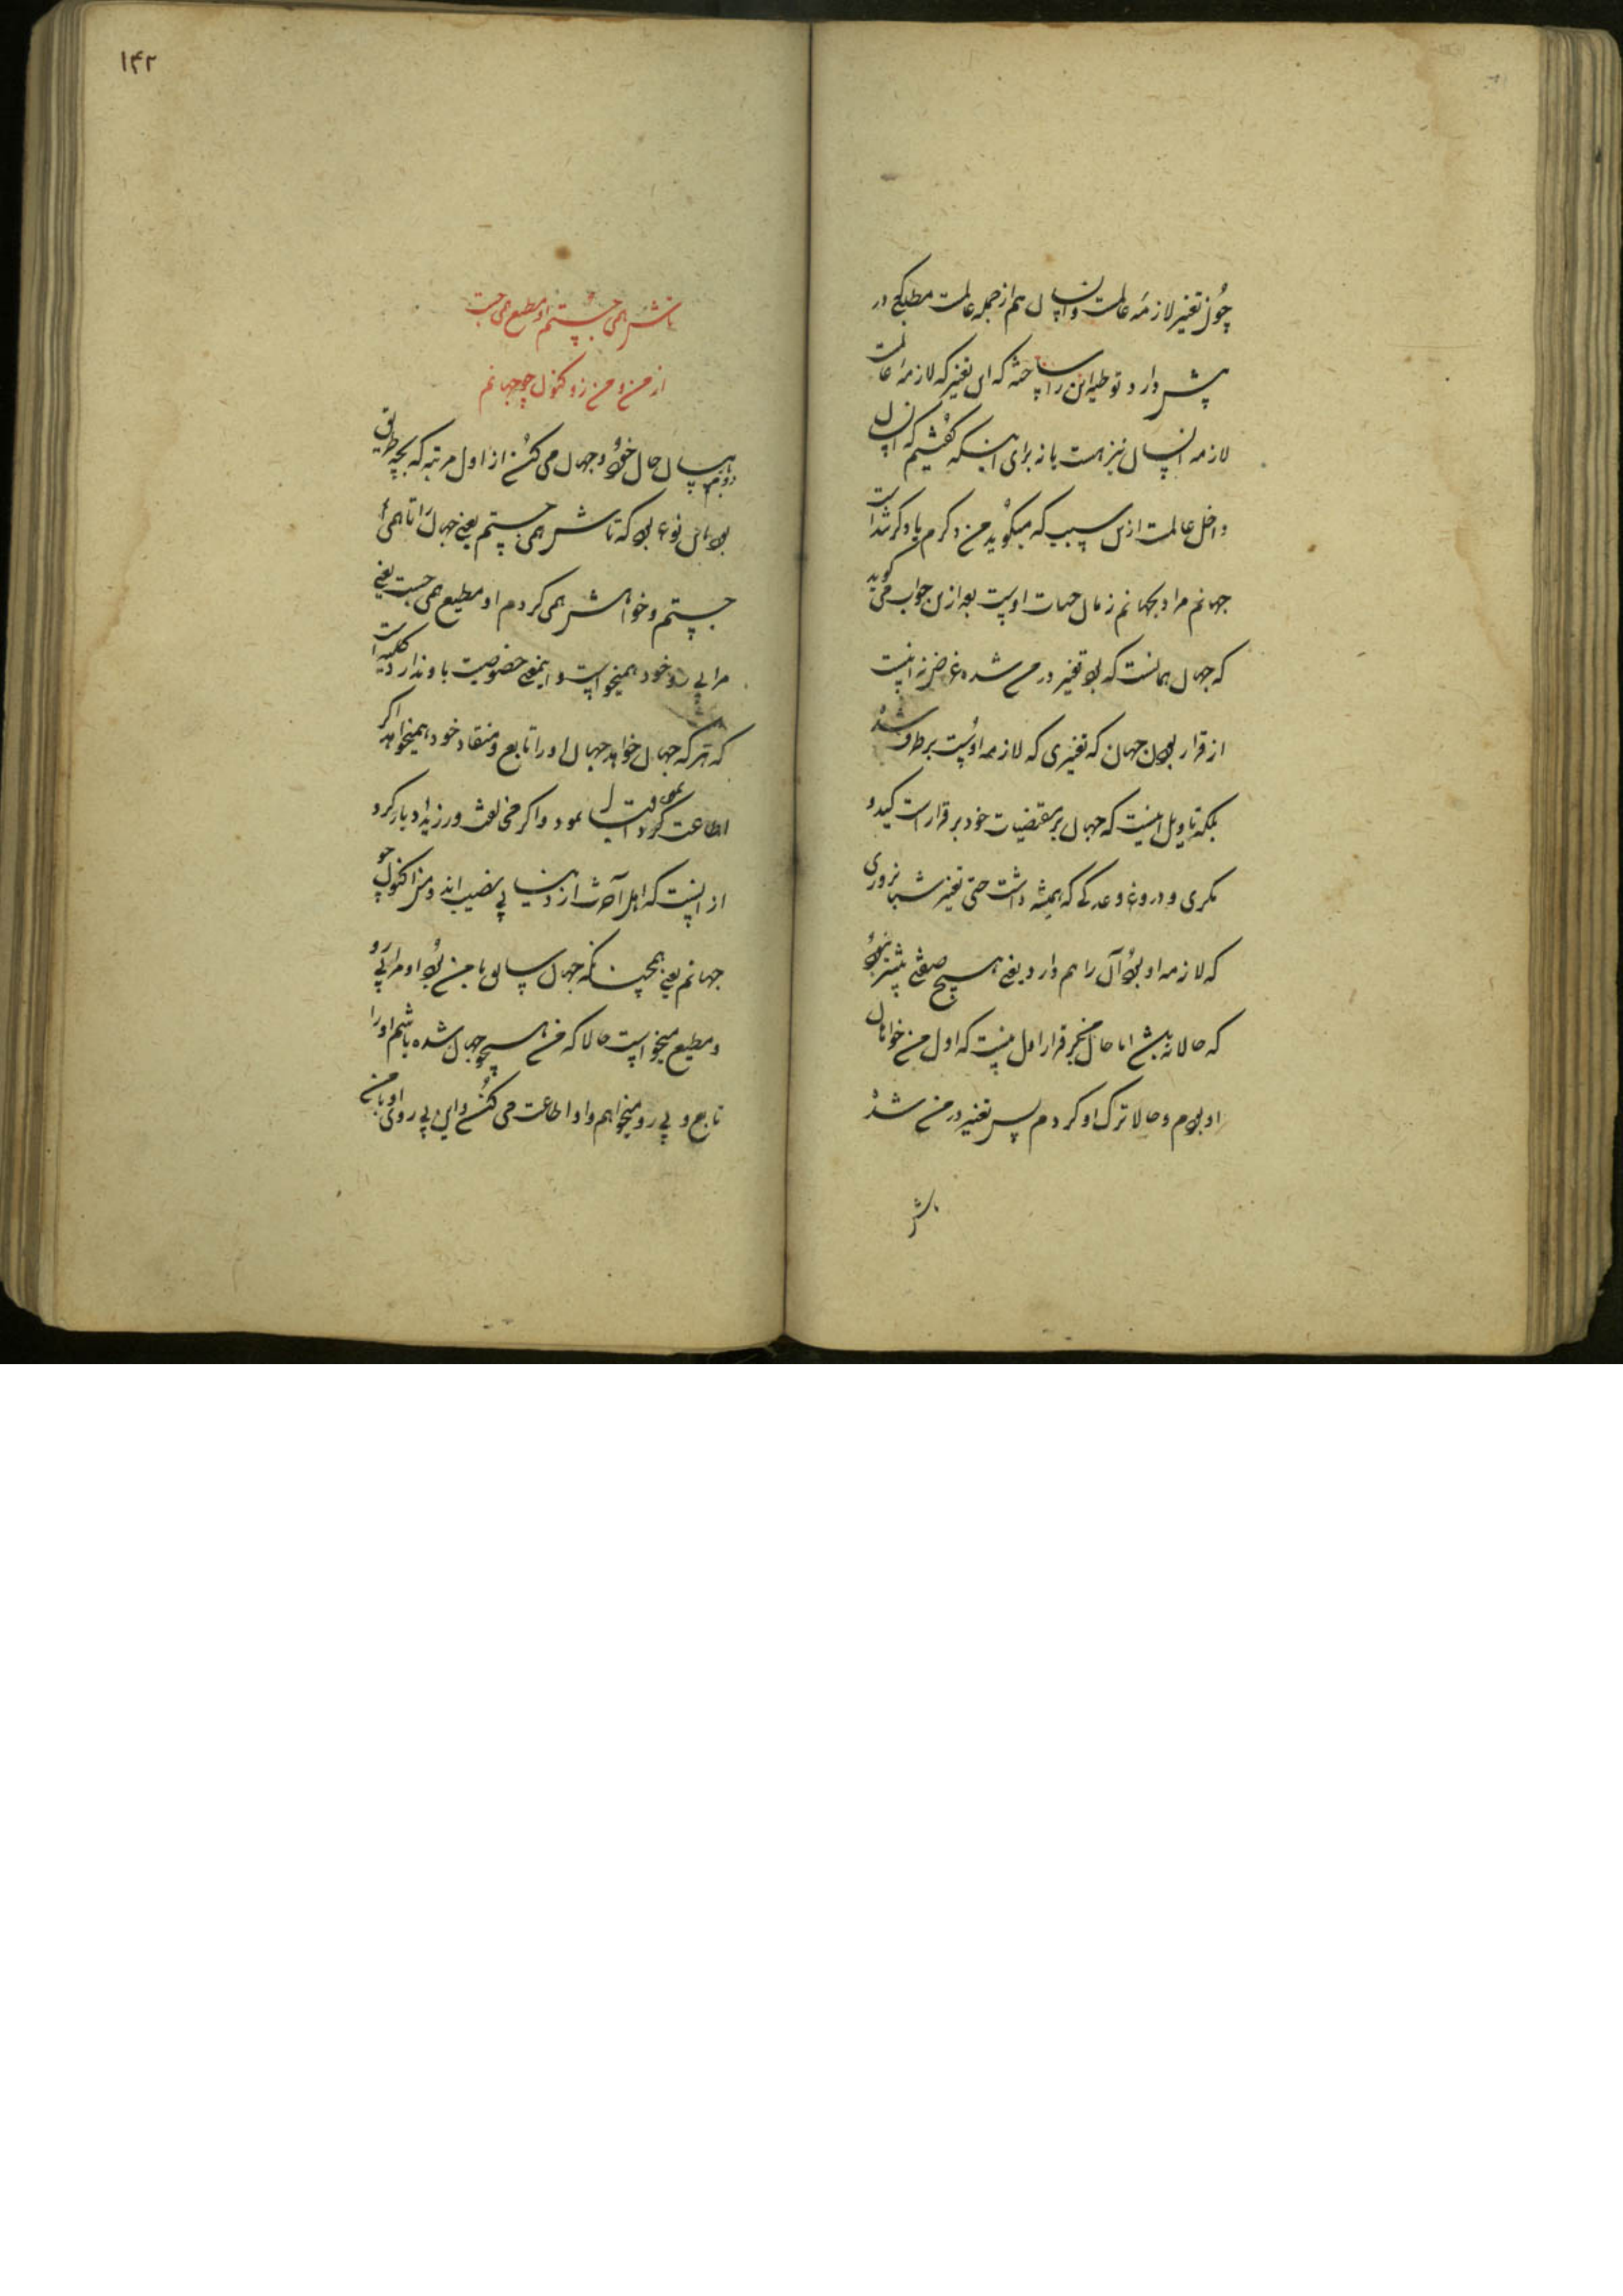 چون تغیر لازمه عالمست و انسان هم از جمله عالمست مطلبی در
پیش دارد توطیه این را ساخته که این تغیر که لازمه عالمست
لازمه انسان نیز هست باز برای اینکه گفتیم که انسان
داخل عالمست ازین سبب که میگوید من دگرم یا دگر شدست
جهانم مراد بجهانم زمان حیات اوست بعد ازین جواب می گوید
که جهان همانست که بود تغیر در من شده غرض نه اینست
از قرار بودن جهان که تغیری که لازمه اوست برطرف شده
بلکه تاویل اینست که جهان بر مقتضیات خود برقرار است کید و
مکری و دروغ وعدگی که همیشه داشت حتی تغیر شبانروزی
که لازمه او بود آن را هم دارد یعنی هیچ صفتی پیشتر نبود
که حالا نه بیش اما حال من بر قرار اول نیست که اول من خواهان
او بودم و حالا ترک او کردم پس تغیر در من شده
تاش
۱۴۲
تاش همی جستم او مطیع همی جست
از من و من زو کنون چو جهانم
درینجا بیان حال خود و جهان می کند از اول مرتبه که بچه طریق
بود باین نوع بود که تاش همی جستم یعنی جهان را تا همی
جستم و خواهش همی کردم او مطیع همی جست یعنی
مرا پی رو خود همیخواست و اینمعنی خصوصیت باو ندارد کلیه است
که هر که جهان خواهد جهان او را تابع و منقاد خود همیخواهد اگر
اطاعت کرد اقبال نمود و اگر مخالفت ورزید ادبار کرد
از اینست که اهل آخرت از دنیا بی نصیب اند و من اکنون چو
جهانم یعنی همچنانکه جهان سابق با من بود او مرا پی رو
و مطیع میخواست حالا که من همچو جهان شده باشم او را
تابع و پی رو میخواهم و او اطاعت می کند و این پی روی او با من